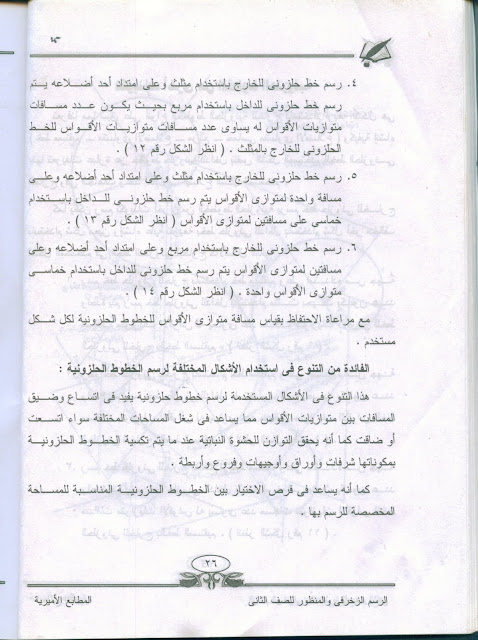 ٤. رسم خط حلزونى للخارج باستخدام مثلث وعلى امتداد أحد أضلاعه يتم
رسم خط حلزونى للداخل باستخدام مربع بحيث يكون عدد مسافات
متوازيات الأقواس له يساوى عدد مسافات متوازيات الأقواس للخط
الحلزونى للخارج بالمثلث . ( انظر الشكل رقم ١٢ ) .
٥. رسم خط حلزونى للخارج باستخدام مثلث وعلى امتداد أحد أضلاعه وعلى
مسافة واحدة لمتوازى الأقواس يتم رسم خط حلزونى للداخل باستخدام
خماسى على مسافتين لمتوازى الأقواس ( انظر الشكل رقم ١٣ ) .
٦. رسم خط حلزونى للخارج باستخدام مربع وعلى امتداد أحد أضلاعه وعلى
مسافتين لمتوازى الأقواس يتم رسم خط حلزونى للداخل باستخدام خماسى
متوازى الأقواس واحدة . ( انظر الشكل رقم ١٤ ) .
مع مراعاة الاحتفاظ بقياس مسافة متوازى الأقواس للخطوط الحلزونية لكل شكل
مستخدم .
الفائدة من التنوع فى استخدام الأشكال المختلفة لرسم الخطوط الحلزونية :
هذا التنوع فى الأشكال المستخدمة لرسم خطوط حلزونية يفيد فى اتساع وضيق
المسافات بين متوازيات الأقواس مما يساعد فى شغل المساحات المختلفة سواء اتسعت
أو ضاقت كما أنه يحقق التوازن للحشوة النباتية عند ما يتم تكسية الخطوط الحلزونية
بمكوناتها شرفات وأوراق وأوجيهات وفروع وأربطة .
كما أنه يساعد فى فرص الاختيار بين الخطوط الحلزونية المناسبة للمساحة
المخصصة للرسم بها .
٢٦
الرسم الزخرفى والمنظور للصف الثانى
المطابع الأميرية